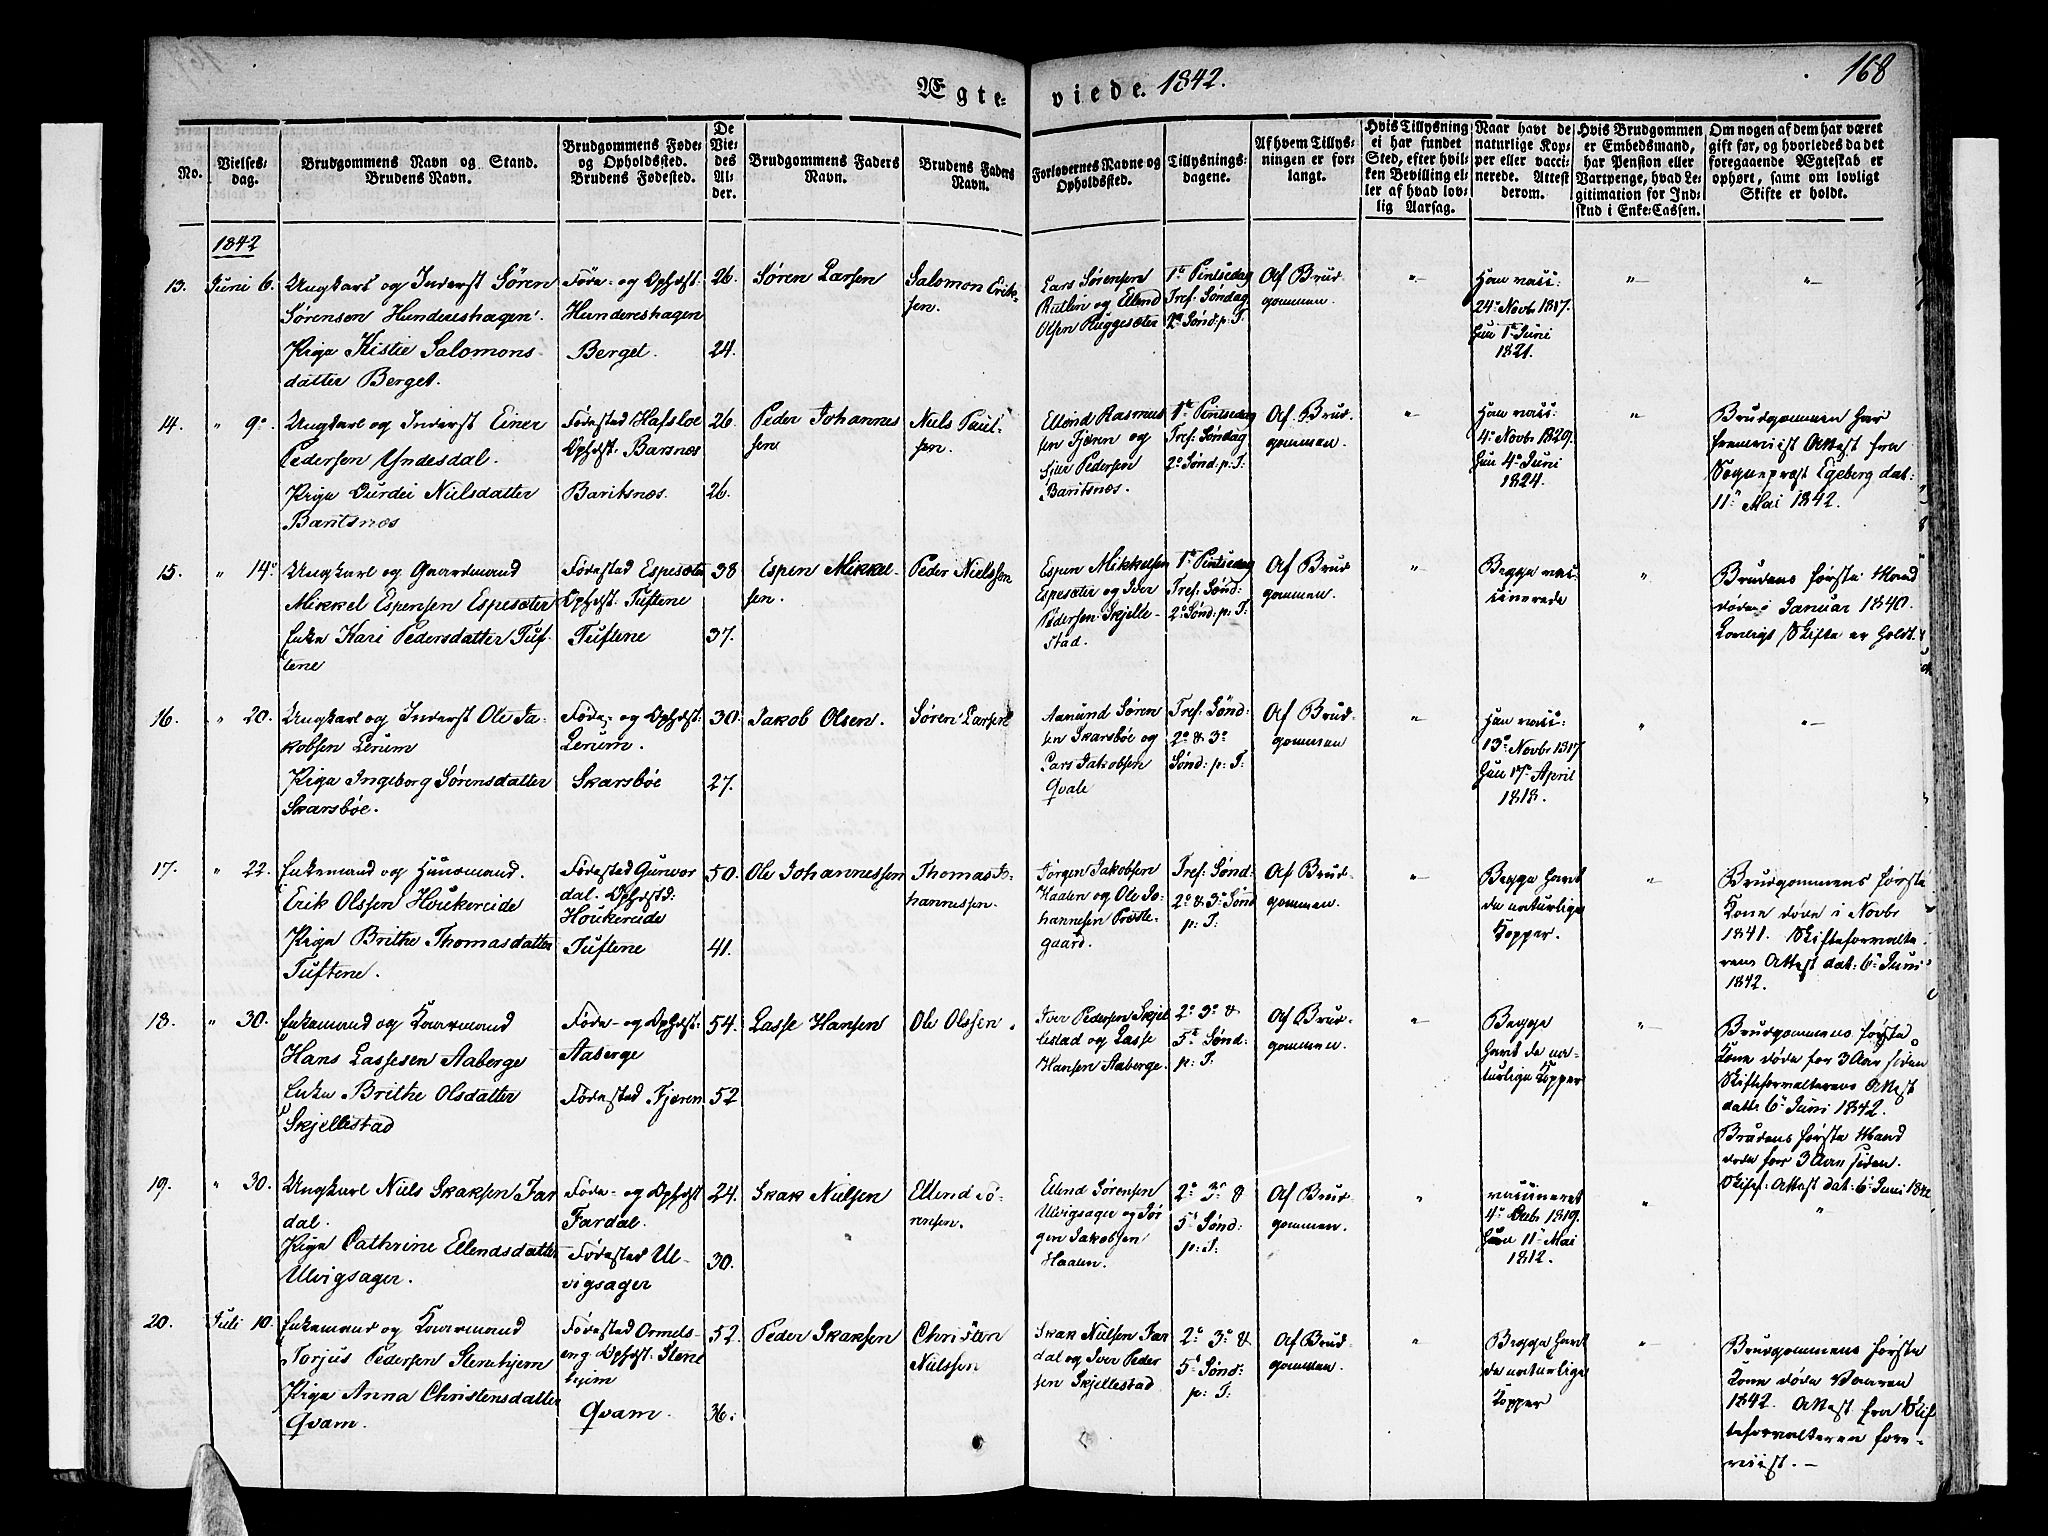 Ægte-viede. 1842.
168
No.
Vielses-dag.
Brudgommens Navn og Stand.
Brudens Navn.
Brudgommens Føde- og Opholdssted.
Brudens Fødested.
De Viedes Alder.
Brudgommens Faders Navn.
Brudens Faders Navn.
Forlovernes Navne og Opholdssted.
Tillysnings-dagene.
Af hvem Tillysningen er forlangt.
Hvis Tillysning ei har fundet Sted, efter hvilken Bevilling eller af hvad lovlig Aarsag.
Naar havt de naturlige Kopper eller vaccinerede. Attest derom.
Hvis Brudgommen er Embedsmand, har Pension eller Vartpenge, hvad Legitimation for Indskud i Enke-Cassen.
Om nogen af dem har været gift før, og hvorledes da det foregaaende Ægteskab er ophørt, samt om lovligt Skifte er holdt.
1842
13. Juni 6. Ungkarl og Inderst Søren
Sørensen Hundereshagen.
Pige Kistie Salomons-
datter Berget.
Føde- og Opholdst:
Hundereshagen
Berget.
26.
24.
Søren Larsen
Salomon Erik-
sen.
Lars Sørensen
Rutlin og Ellend
Olsen Ruggesæter
1te Pintsedag
Tref: Søndag
2den Sønd: p: T.
Af Brud-
gommen.
"
Han vacc:
24de Novbr 1817.
Hun 1te Juni
1821.
"
"
14. " 9de Ungkarl og Inderst Einer
Pedersen Yndesdal.
Pige Gurdei Nielsdatter
Baritsnæs
Fødested Hafsloe
Opholdst: Barsnæs
Baritsnæs.
26.
26.
Peder Johannes
sen
Niels Paul-
sen.
Ellend Rasmus
sen Fjæren og
Sjur Pedersen
Baritsnæs.
1te Pintsedag
Tref: Søndag
2de Sønd: p: T:
Af Brud-
gommen.
"
Han vacc:
4de Novbr 1820.
Hun 4de Juni
1824.
"
Brudgommen har
fremviist Attest fra
Sogneprest Egeberg dat:
11te Mai 1842.
15. " 14de Ungkarl og Gaardmand
Mikkel Espensen Espesæter
Enke Kari Pedersdatter Tuf-
tene
Fødested Espesæter
Opholdst: Tuftene
Tuftene
38
37.
Espen Mikkel-
sen.
Peder Nielssen
Espen Mikkelsen
Espesæter og Iver
Pedersen Skjelle-
stad.
1te Pintsedag
Tref: Sønd:
2de Sønd: p: T:
Af Brud-
gommen.
"
Begge vac-
cinerede
"
Brudens første Mand
døde i Januar 1840.
Lovligt Skifte er holdt.
16. " 20. Ungkarl og Inderst Ole Ja-
kobsen Lerum
Pige Ingeborg Sørensdatter
Skarsbøe.
Føde- og Opholdst:
Lerum.
Skarsbøe
30.
27.
Jakob Olsen.
Søren Larsen
Aamund Søren
sen Skarsbøe og
Lars Jakobsen
Qvale
Tref: Sønd:
2de & 3de
Sønd: p: T:
Af Brud-
gommen
"
Han vacc:
13de Novbr 1817.
Hun 17de April
1818.
"
"
17. " 22. Enkemand og Huusmand.
Erik Olssen Houkereide
Pige Brithe Thomasdatter
Tuftene.
Fødested Gunvor
dal. Opholdstd:
Houkereide
Tuftene
50.
41.
Ole Johannessen
Thomas Jo-
hannessen.
Jørgen Jakobsen
Haalen og Ole Jo-
hannesen Præste-
gaard.
Tref: Sønd:
2de & 3de Sønd
p: T:
Af Brud-
gommen.
"
Begge havt
de naturlige
Kopper.
"
Brudgommens første
Kone døde i Novbr
1841. Skifteforvalte-
rens Attest dat: 6te Juni
1842.
18. " 30. Enkemand og Kaarmand
Hans Lassesen Aaberge
Enke Brithe Olsdatter
Skjellestad
Føde- og Opholdst:
Aaberge
Fødested Fjæren
54.
52
Lasse Hansen
Ole Olssen.
Iver Pedersen Skjel
lestad og Lasse
Hansen Aaberge.
2de 3de &
5te Sønd:
p: T:
Af Brud-
gommen.
"
Begge
havt de na-
turlige Kopper
"
Brudgommens første
Kone døde for 3 Aar siden
Skifteforvalterens Attest
datt: 6te Juni 1842.
Brudens første Mand
døde for 3 Aar siden.
Skift: Attest dat: 6te Juni 1842
19. " 30. Ungkarl Niels Skaksen Far
dal.
Pige Cathrine Ellendsdatter
Ulvigsager.
Føde- og Opholdst
Fardal.
Fødested Ul-
vigsager
24.
30.
Skak Nielsen
Ellend Sø-
rensen.
Ellend Sørensen
Ulvigsager og Jør
gen Jakobsen
Haalen.
2de 3de &
5te Sønd:
p: T:
Af Brud-
gommen.
"
vaccineret
4de Decbr 1819.
Hun 11te Mai
1812.
"
"
20. Juli 10. Enkemand og Kaarmand
Torjus Pedersen Stenehjem
Pige Anna Christensdatter
Qvam.
Fødested Ormels-
eng Opholdst: Stene
hjem
Qvam.
52.
36.
Peder Skaksen
Christen
Nielssen
Skak Nielsen Far
dal og Iver Peder
sen Skjellestad
2de 3de &
5te Sønd:
p: T:
Af Brud-
gommen.
"
Begge havt
de naturlige
Kopper
"
Brudgommens første
Kone døde Vaaren
1842. Attest fra Skif
teforvalteren frem-
viist. -